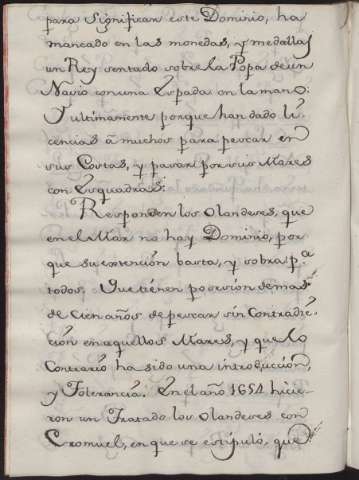 para significar este Dominio, ha
marcado en las monedas, y medallas
un Rey sentado sobre la Popa de un
Navio con una Espada en la mano:
Y ultimamente porque han dado li-
cencias â muchos para pescar en
sus Costas, y pasar por sus Mares
con Esquadras:
Responden los Olandeses, que
en el Mar no hay Dominio, por
que su extencion basta, y sobra p.ª
todos. Que tienen posesion de mas
de cien años de pescar sin Contradic-
cion en aquellos Mares, y que lo
Contrario ha sido una introduccion,
y Tolerancia. En el año 1654 hicie-
ron un Tratado los Olandeses con
Cromuel, en que se estipuló, que